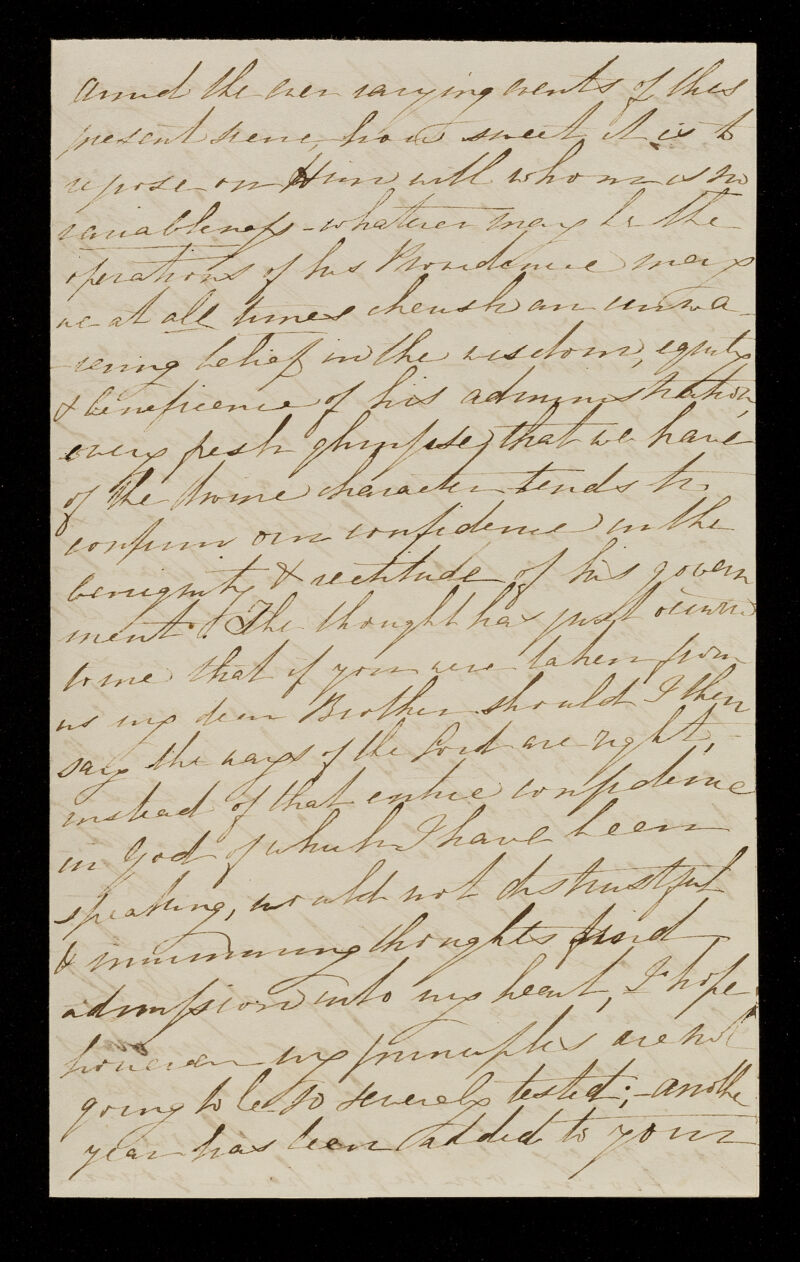 amid the ever varying events of this
present scene, how sweet it is to
repose on Him with whom is no
variableness - whatever may be the
operations of his Providence may
we at all times cherish an unwa-
vering belief in the wisdom, equity
& beneficence of his administration,
every fresh glimpse that we have
of the divine character tends to
confirm our confidence in the
benignity & rectitude of his govern
ment. The thought has just occurred
to me that if you were taken from
us my dear Brother should I then
say the ways of the Lord are right,
instead of that entire confidence
in God of which I have been
speaking, would not distrustful
& murmuring thoughts find
admission into my heart, I hope
however my principles are not
going to be so severely tested; - another
year has been added to your